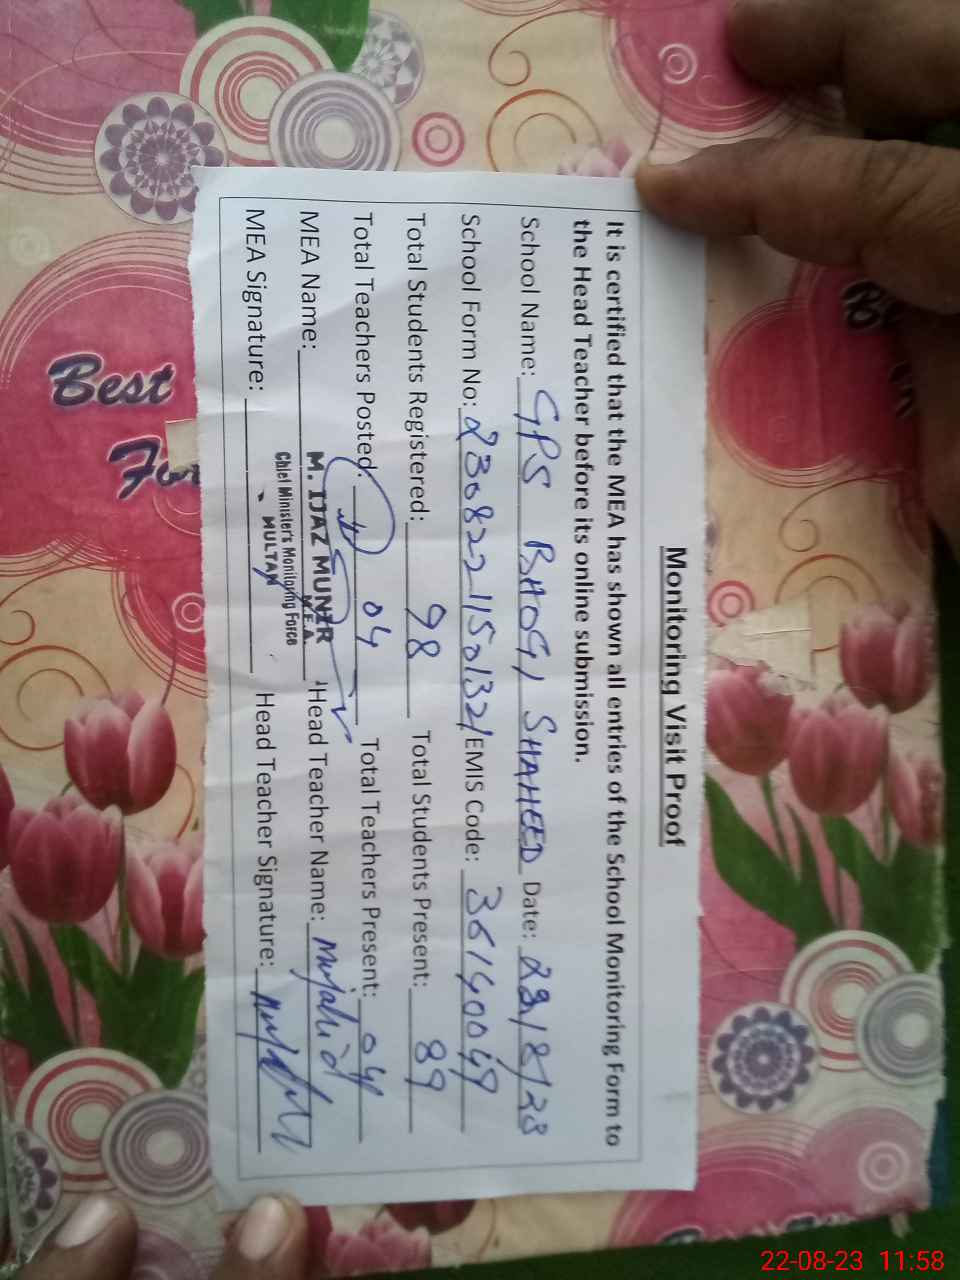 Monitoring Visit Proof
It is certified that the MEA has shown all entries of the School Monitoring Form to
the Head Teacher before its online submission.
School Name: GPS BHOGI SHAHEED Date: 22/8/23
School Form No: 23082211501321 EMIS Code: 36140049
Total Students Registered: 98 Total Students Present: 89
Total Teachers Posted: 04 Total Teachers Present: 04
MEA Name: M. IJAZ MUNIR Head Teacher Name: Mujahid
M.E.A.
Chief Minister's Monitoring Force
MULTAN
MEA Signature: Head Teacher Signature:
Best
For
22-08-23 11:58